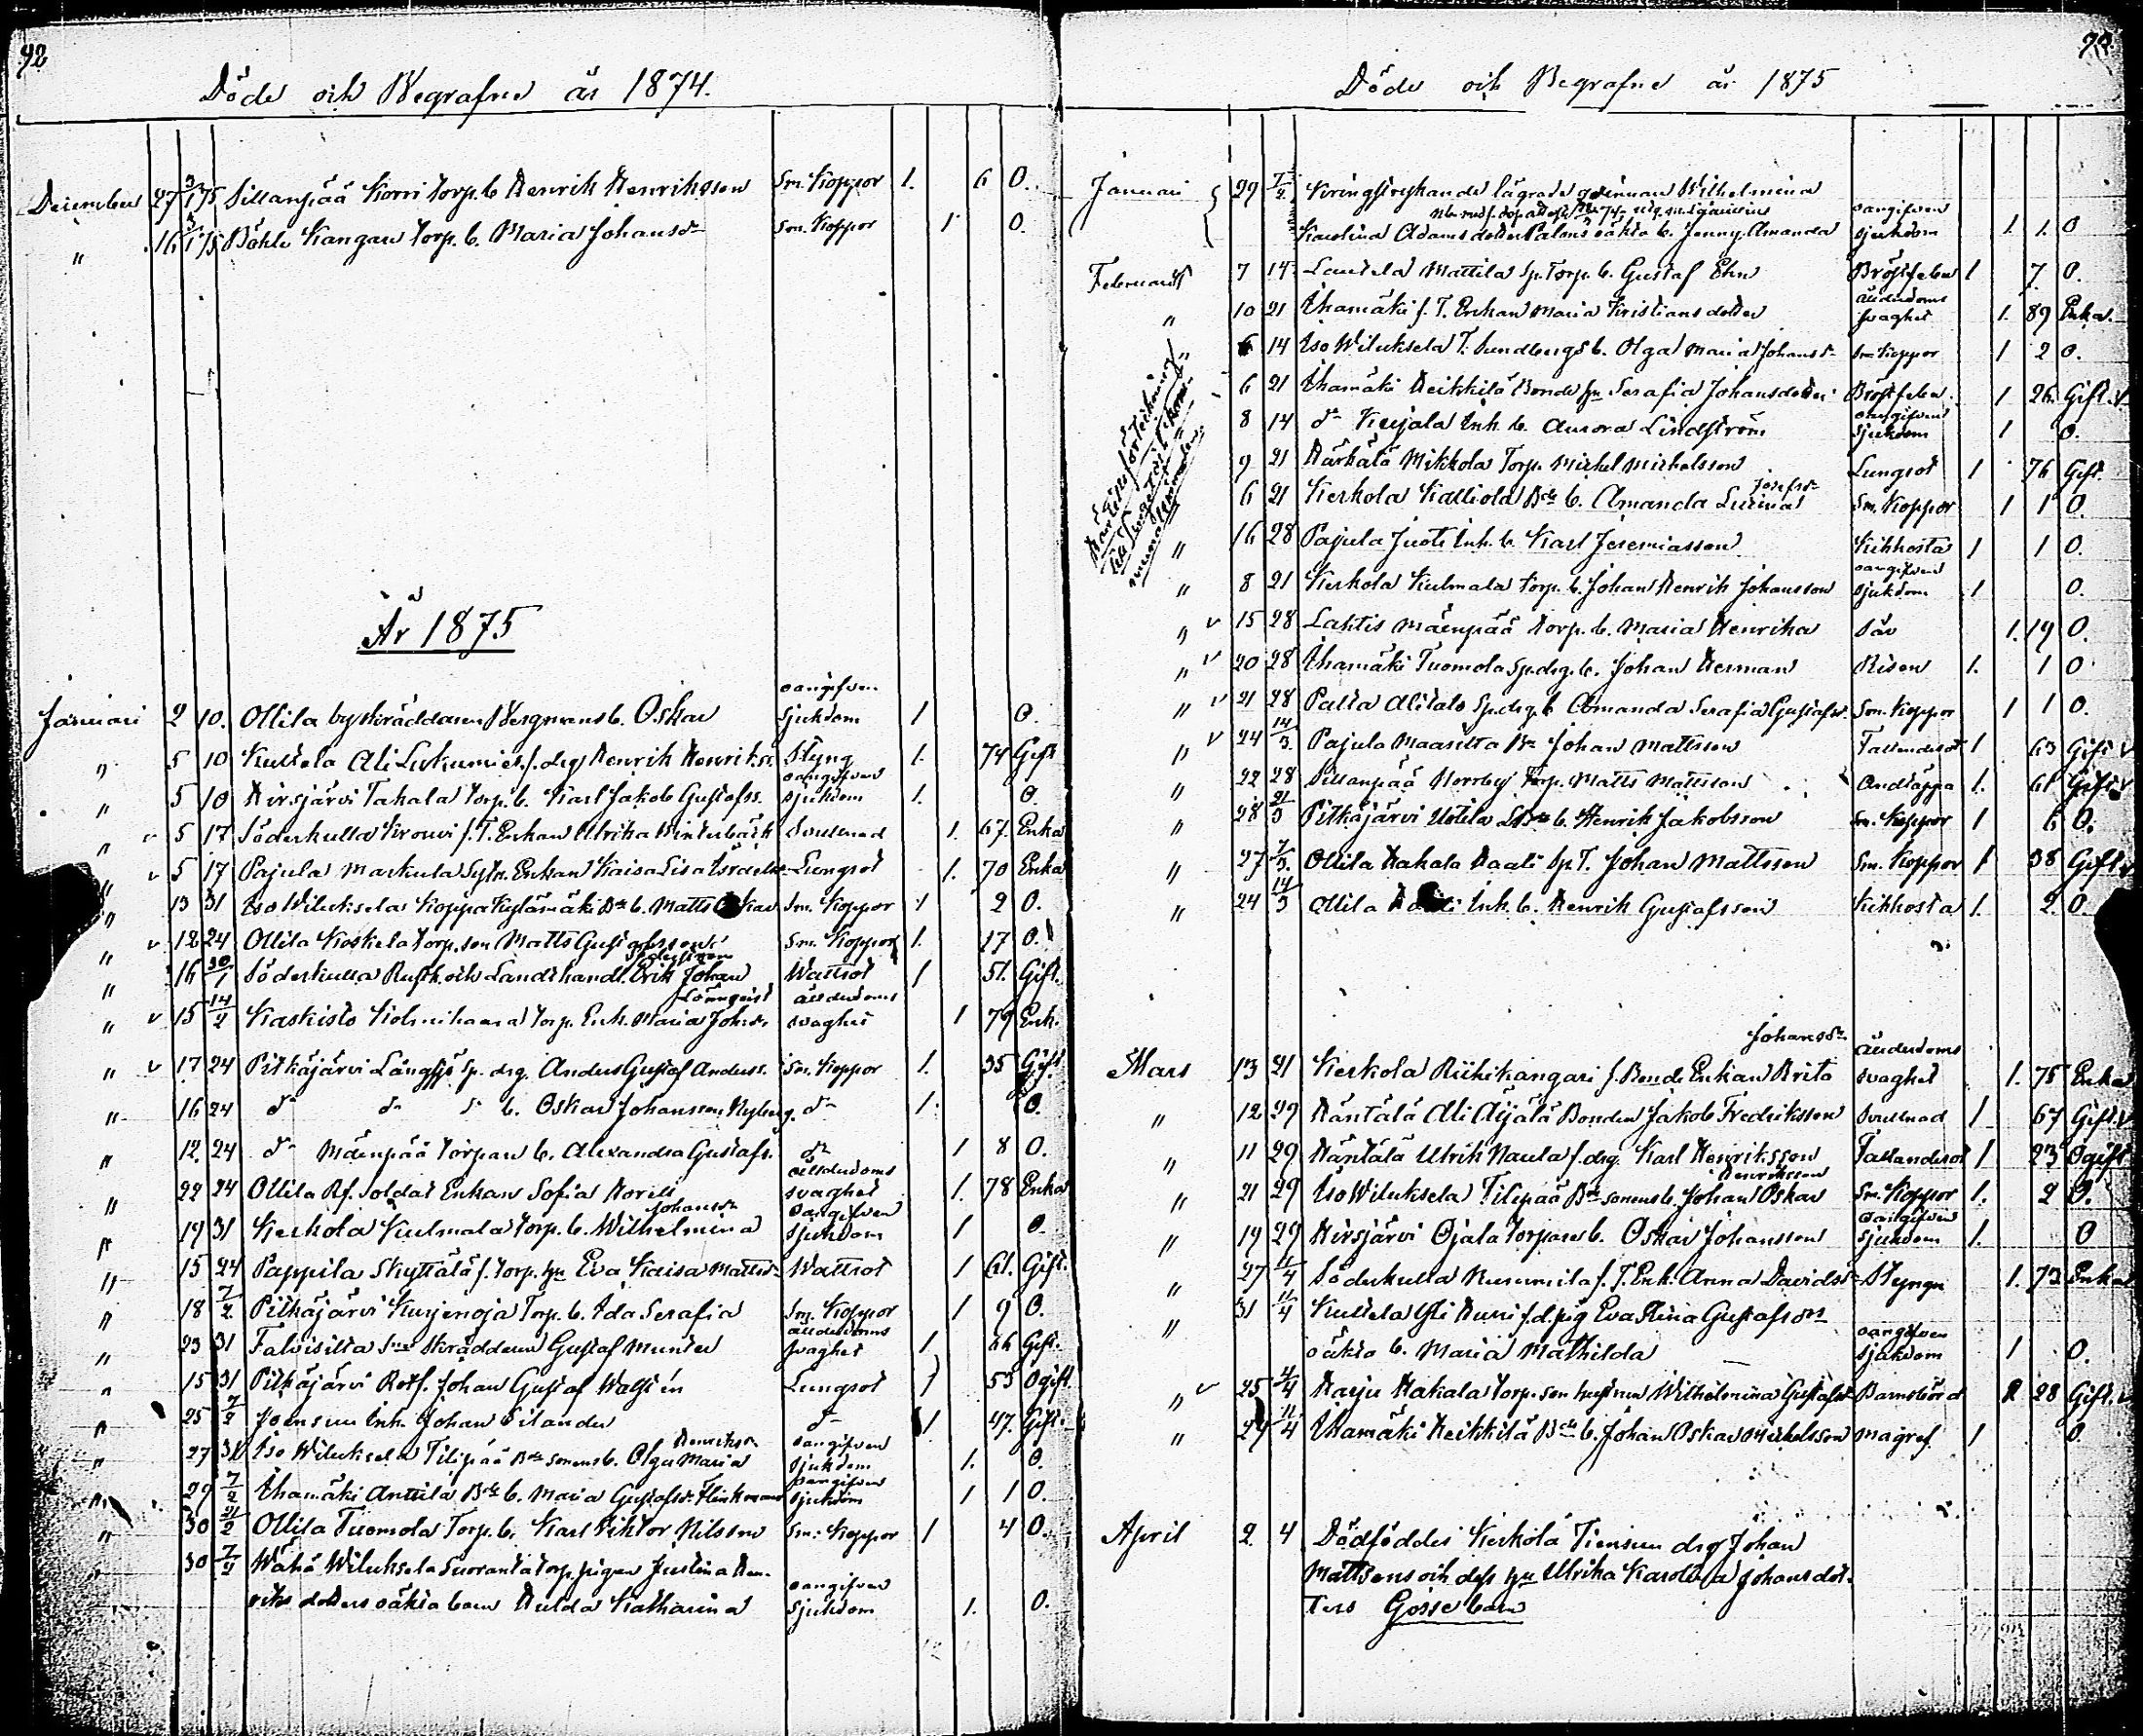 92
Döde och Begrafne år 1874.
December 27 3/1 75 Sillanpää Korri torp. b. Henrik Henriksson Sm. Koppor 1. 6 O.
" 16 3/1 75 Böhle Kangas torp. b. Maria Johansdr Sm. Koppor 1 O.
År 1875
Januari 2 10. Ollila byskräddaren Bergmans b. Oskar oangifven sjukdom 1 O.
" 5 10 Kultela Ali Lukumies f. drg Henrik Henrikss. Styng 1. 74 Gift
" 5 10 Hirsjärvi Tahala torp. b. Karl Jakob Gustafss. oangifven sjukdom 1. O.
" 5 17 Söderkulla Krouvi f. T. Enkan Ulrika Winterbäck Svullnad 1. 67. Enka
" v 5 17 Pajula Markula Sytn. Enkan Kaisa Lisa Israelsdr Lungsot 1. 70 Enka
" 13 31 Iso Wiluksela Koppa Kylämäki Bds b. Matts Oskar Sm. Koppor 1 2 O.
" v 12 24 Ollila Koskela torp. son Matts Gustafsson Sm. Koppor 1. 17 O.
" 16 30/1 Söderkulla Rusth. och Landthandl. Erik Johan Söderström Wattsot 1 51. Gift.
" v 15 14/2 Kaskisto Kolmihaara torp. Enk. Maria Johsdr Lönnqvist ålderdoms svaghet 1 79 Enk.
" v 17 24 Pitkäjärvi Långsjö Sp. drg. Anders Gustaf Anderss. Sm. Koppor 1. 35 Gift
" 16 24 do do do b. Oskar Johansson Nyberg. do 1. O.
" 12. 24 do Mäenpää torpare b. Alexandra Gustafs. do 1 8 O.
" 22 24 Ollila Rf. soldat Enkan Sofia Korell ålderdoms svaghet 1. 78 Enka
" 19 31 Kerkola Kulmala torp. b. Wilhelmina Johansdr oangifven sjukdom 1 O.
" 15 24 Pappila Skyttälä f. torp. hu Eva Kaisa Mattsdr Wattsot 1 61. Gift.
" 18 7/2 Pitkäjärvi Kurjenoja Torp. b. Ida Serafia Sm. Koppor 1 9 O.
" 23 31 Talvisilta Skräddaren Gustaf Munter ålderdoms svaghet 1 66 Gift.
" 15 31 Pitkäjärvi Rotf. Johan Gustaf Wallstén Lungsot 1 53 Ogift.
" 25 7/2 Joensuu Inh. Johan Silander do 1 47. Gift.
" 27 31 Iso Wiluksela Tilipää Bds sonens b. Olga Maria Henriksdr oangifven sjukdom 1. O.
" 29 7/2 Ihamäki Anttila Bds b. Maria Gustafsdr Flinkman oangifven sjukdom 1 1 O.
" 30 21/2 Ollila Tuomola Torp. b. Karl Viktor Nilsson Sm. Koppor 1 4 O.
" 30 7/2 Wähä Wiluksela Suoranta torp. pigan Justina Hen-
riksdotters oäkta barn Hulda Katharina oangifven sjukdom 1. O.
Döde och Begrafne år 1875
Januari 29 7/2 Kringstrykande lägrade qvinnan Wilhelmina
Karolina Adamsdotter Palens oäkta b. Jenny Amanda oangifven sjukdom 1 1. O
Februari 7 14 Lautela Mattila Sp. Torp. b. Gustaf Ehn Bröstfeber 1 7 O.
" 10 21 Ihamäki f. T. Enkan Maria Kristiansdotter ålderdoms svaghet 1. 89 Enka.
" 6 14 Iso Wiluksela T. Sundbergs b. Olga Maria Johansdr Sm. Koppor 1 2 O.
6 21 Ihamäki Heikkilä Bonde hu Serafia Johansdotter Bröstfeber 1 26. Gift. v
8 14 do Kujala Inh. b. Aurora Lindström oangifven sjukdom 1 O.
9 21 Härkälä Mikkola Torp. Mickel Mickelsson Lungsot 1 76 Gift.
6 21 Kerkola Kalliola Bds b. Amanda Lovisa Josefsdr Sm. Koppor 1 1 O.
" 16 28 Pajula Juoti Inh. b. Karl Jeremiasson Kikhosta 1 1 O.
" 8 21 Kerkola Kulmala torp. b. Johan Henrik Johansson oangifven sjukdom 1 O.
" v 15 28 Lahtis Mäenpää torp. b. Maria Henrika Sår 1. 19 O.
" v 20 28 Ihamäki Tuomola Sp. drg. b. Johan Herman Risen 1. 1 O.
" v 21 28 Palta Alitalo Sp. drg. b. Amanda Serafia Gustafsdr Sm. Koppor 1 1 O.
" v 24 14/3. Pajula Maasilta Bn Johan Mattsson Fallandesot 1 63 Gift v
" 22 28 Sillanpää Norrby Torp. Matts Mattsson Andtäppa 1. 61 Gift v
" 28 21/3 Pitkäjärvi Uotila b. Henrik Jakobsson Sm. Koppor 1 6 O.
" 27 7/3. Ollila Hakala Haali Sp. T. Johan Mattsson Sm. Koppor 1 38 Gift v
" 24 14/3 Ollila Inh. b. Henrik Gustafsson Kikhosta 1. 2. O.
Mars 13 21 Kerkola Riihikangari f. Bonde Enkan Brita Johansdr ålderdoms svaghet 1. 75 Enka
" 12 29 Häntälä Ali Äijälä Bonden Jakob Fredriksson Svullnad 1 67 Gift. v
" 11 29 Häntälä Ulrik Naula f. drg. Karl Henriksson Fallandesot 1 23 Ogift
" 21 29 Iso Wiluksela Tilipää Bds sonens b. Johan Oskar Henriksson Sm. Koppor 1. 2 O.
" 19 29 Hirsjärvi Ojala torpares b. Oskar Johansson oangifven sjukdom 1. O
" 27 11/4 Söderkulla Rusumila f. T. Enk. Anna Davidsdr Styngn 1. 73 Enka
" 31 11/4 Kultela Yli Hursi f. d. pig Eva Stina Gustafsdrs
oäkta b. Maria Mathilda oangifven sjukdom 1 O.
" v 25 4/4 Harju Hakala torp. son hustrun Wilhelmina Gustafsdr Barnsbörd 1 28 Gift. v
" 29 11/4 Ihamäki Heikkilä Bds b. Johan Oskar Mickelsson Magref. 1 O.
April 2. 4 Dödföddes Kerkola Tiensuu drg Johan
Mattsons och dess hu Ulrika Karolina Johansdot-
ters Gossebarn